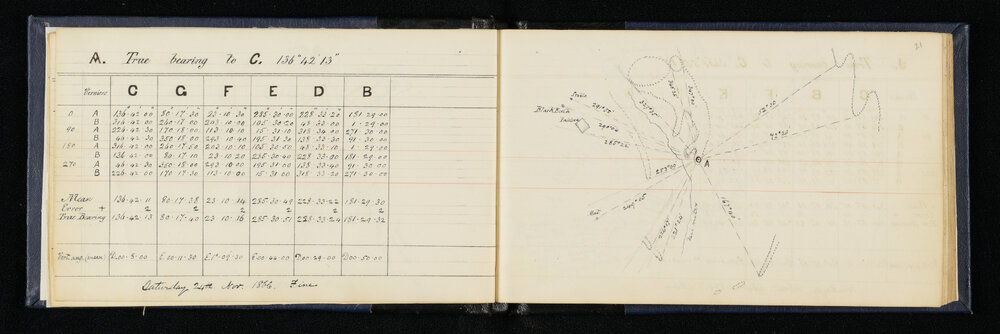 A. True bearing to C. 136°42'13"
Verniers C G F E D B
0 A 136.42.00 80.17.30 23.10.30 285.30.00 228.33.20 181.29.00
B 316.42.00 260.17.00 203.10.00 105.30.20 48.33.00 1.29.00
90 A 226.42.30 170.18.00 113.10.10 15.31.10 318.34.00 271.30.00
B 46.42.30 350.18.00 293.10.40 195.31.30 138.33.30 91.30.00
180 A 316.42.00 260.17.50 203.10.10 105.30.50 48.33.10 1.29.00
B 136.42.00 80.17.10 23.10.20 285.30.40 228.33.00 181.29.00
270 A 46.42.30 350.18.00 293.10.00 195.31.00 138.33.40 91.30.00
B 226.42.00 170.17.30 113.10.00 15.31.00 318.33.20 271.30.00
Mean 136.42.11 80.17.38 23.10.14 285.30.49 228.33.22 181.29.30
Error + 2 2 2 2 2 2
True Bearing 136.42.13 80.17.40 23.10.16 285.30.51 228.33.24 181.29.32
Vert. ang. (mean) D.00.8.00 E.00.11.30 E.1°.09.30 E.00.44.00 D.00.29.00 D.00.50.00
Saturday 24th Nov. 1886. Fine
21
Black Rock
285°22
283°00
52°30
72°20
A